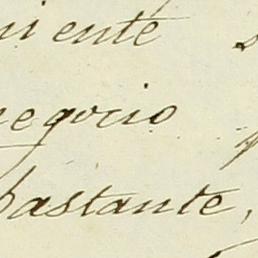 niente
negocio
bastante,